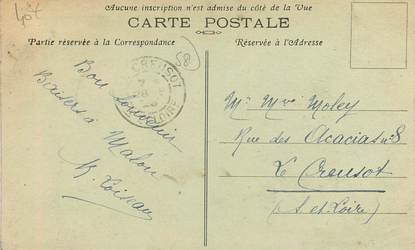 Aucune inscription n'est admise du côté de la Vue
CARTE POSTALE
Partie réservée à la Correspondance
Réservée à l'Adresse
58
CREUSOT
LOIRE
Bon souvenir
Baisers à Malou
M. Loiseau
Mr Mme Moley
Rue des Acacias n° 8
Le Creusot
(S. et Loire)